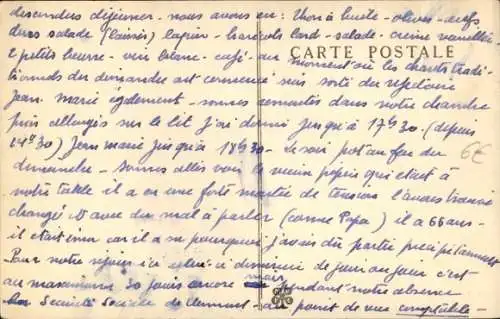 descendus déjeuner - nous avons eu : Thon à l'huile - olives - œufs
durs salade (laissés) lapin - haricots lard - salade - crème vanillée
CARTE POSTALE
2 petits beurre - vin blanc - café - au moment où les chants tradi-
tionnels du dimanche ont commencé suis sorti du réfectoire
Jean Marie également - sommes remontés dans notre chambre
puis allongés sur le lit j'ai dormi jusqu'à 17h30 - (depuis
14h30) Jean Marie jusqu'à 18h30 - le soir pot au feu du
6€
dimanche - sommes allés voir le vieux pépin qui était à
notre table il a eu une forte montée de tension l'avons trouvé
changé & avec du mal à parler (comme Papa) il a 66 ans -
il était ému car il a su pourquoi j'avais dû partir précipitamment
Pour notre séjour ici celui-ci diminue de jour en jour c'est
au maximum 30 jours encore mais pendant notre absence
la Sécurité Sociale de Clermont - au point de vue comptable -